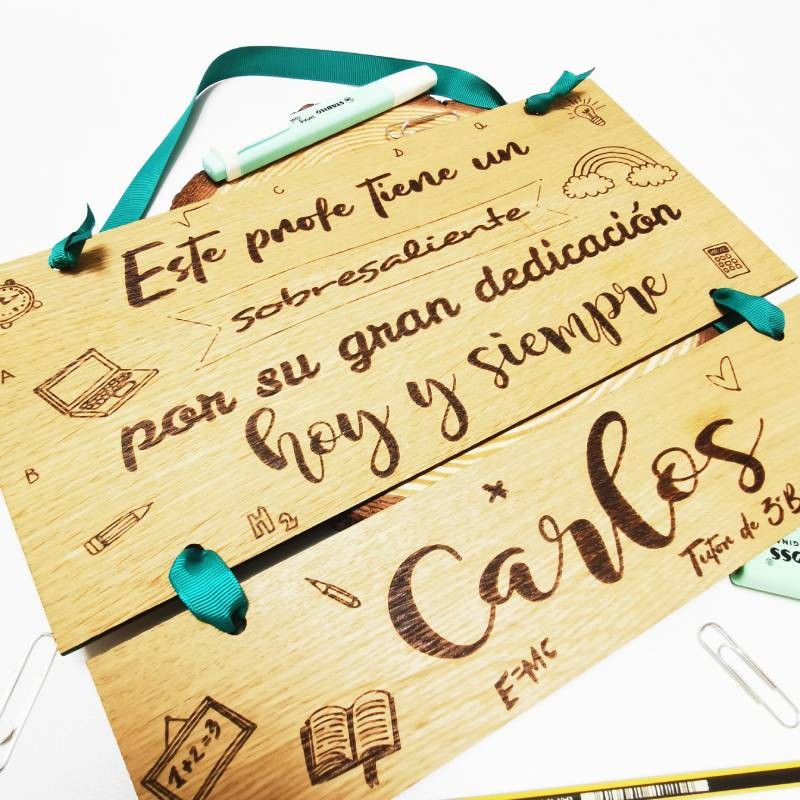 STABILO
swing
cool
C
D
a
Este profe tiene un
sobresaliente
por su gran dedicación
hoy y siempre
A
B
H2
Carlos
Tutor de 3ºB
E=MC
1+2=3
OSS